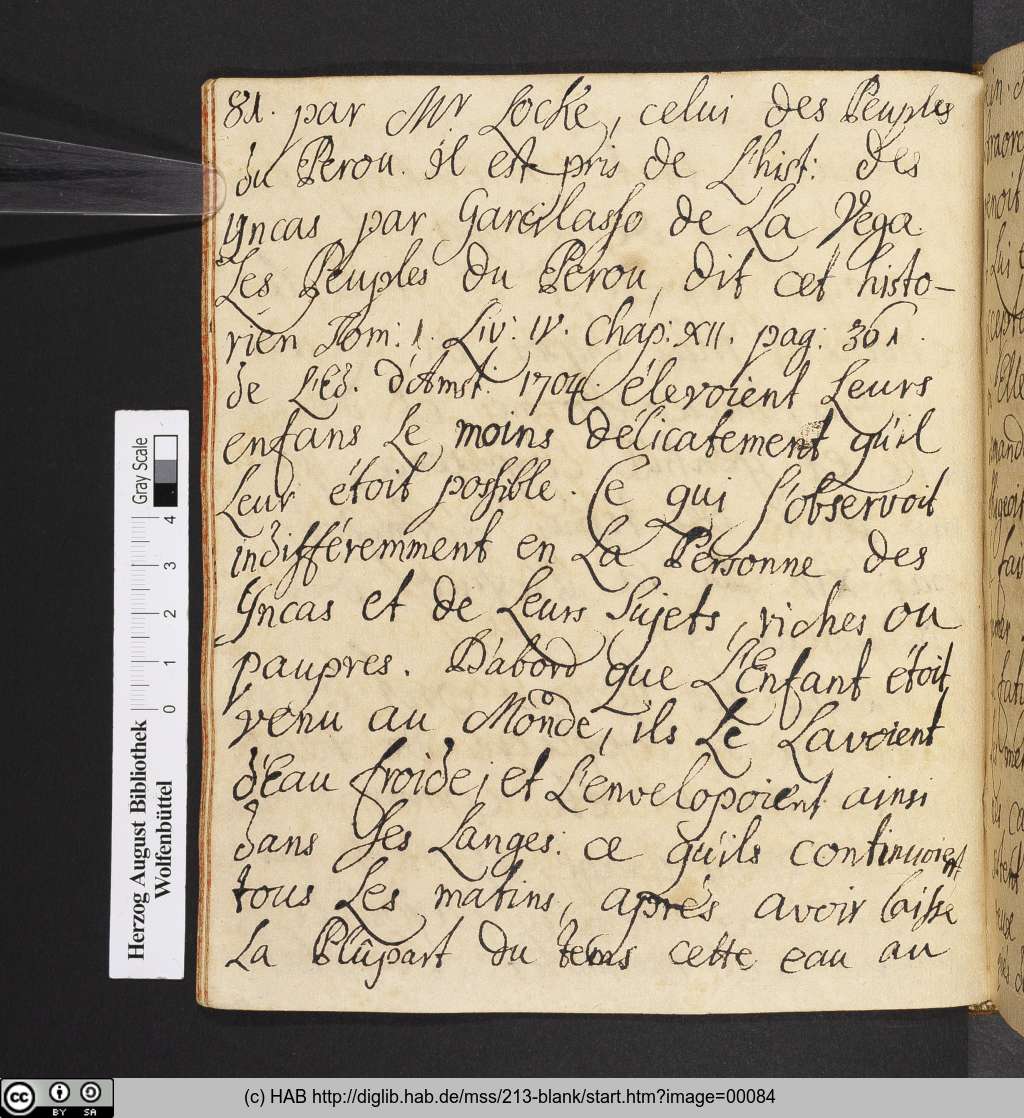 81. par Mr Locke, celui des Peuples
du Perou. il est pris de L'hist: des
Yncas par Garcilasso de La Vega.
Les Peuples du Perou, dit cet histo-
rien Tom: 1. Liv: IV. Chap: XII. pag: 361.
de L'Ed. d'Amst: 1704. élevoient Leurs
enfans Le moins délicatement qu'il
Leur étoit possible. Ce qui s'observoit
indifféremment en La Personne des
Yncas et de Leurs Sujets, riches ou
paupres. D'abord que L'Enfant étoit
venu au Monde, ils Le Lavoient
d'Eau froide; et L'envelopoient ainsi
dans ses Langes: ce qu'ils continuoient
tous Les matins, aprés avoir laissé
La Plûpart du tems cette eau au
Herzog August Bibliothek
Wolfenbüttel
0 1 2 3 4
Gray Scale
(c) HAB http://diglib.hab.de/mss/213-blank/start.htm?image=00084
cc BY SA